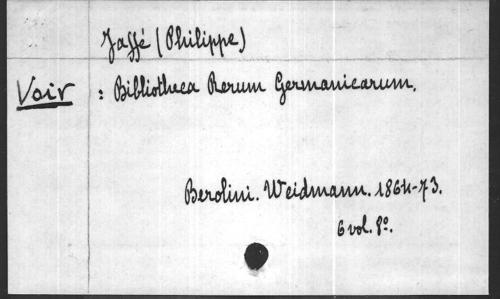 Jaffé (Philippe)
Voir : Bibliotheca Rerum Germanicarum.
Berolini. Weidmann. 1864-73.
6 vol. 8º.